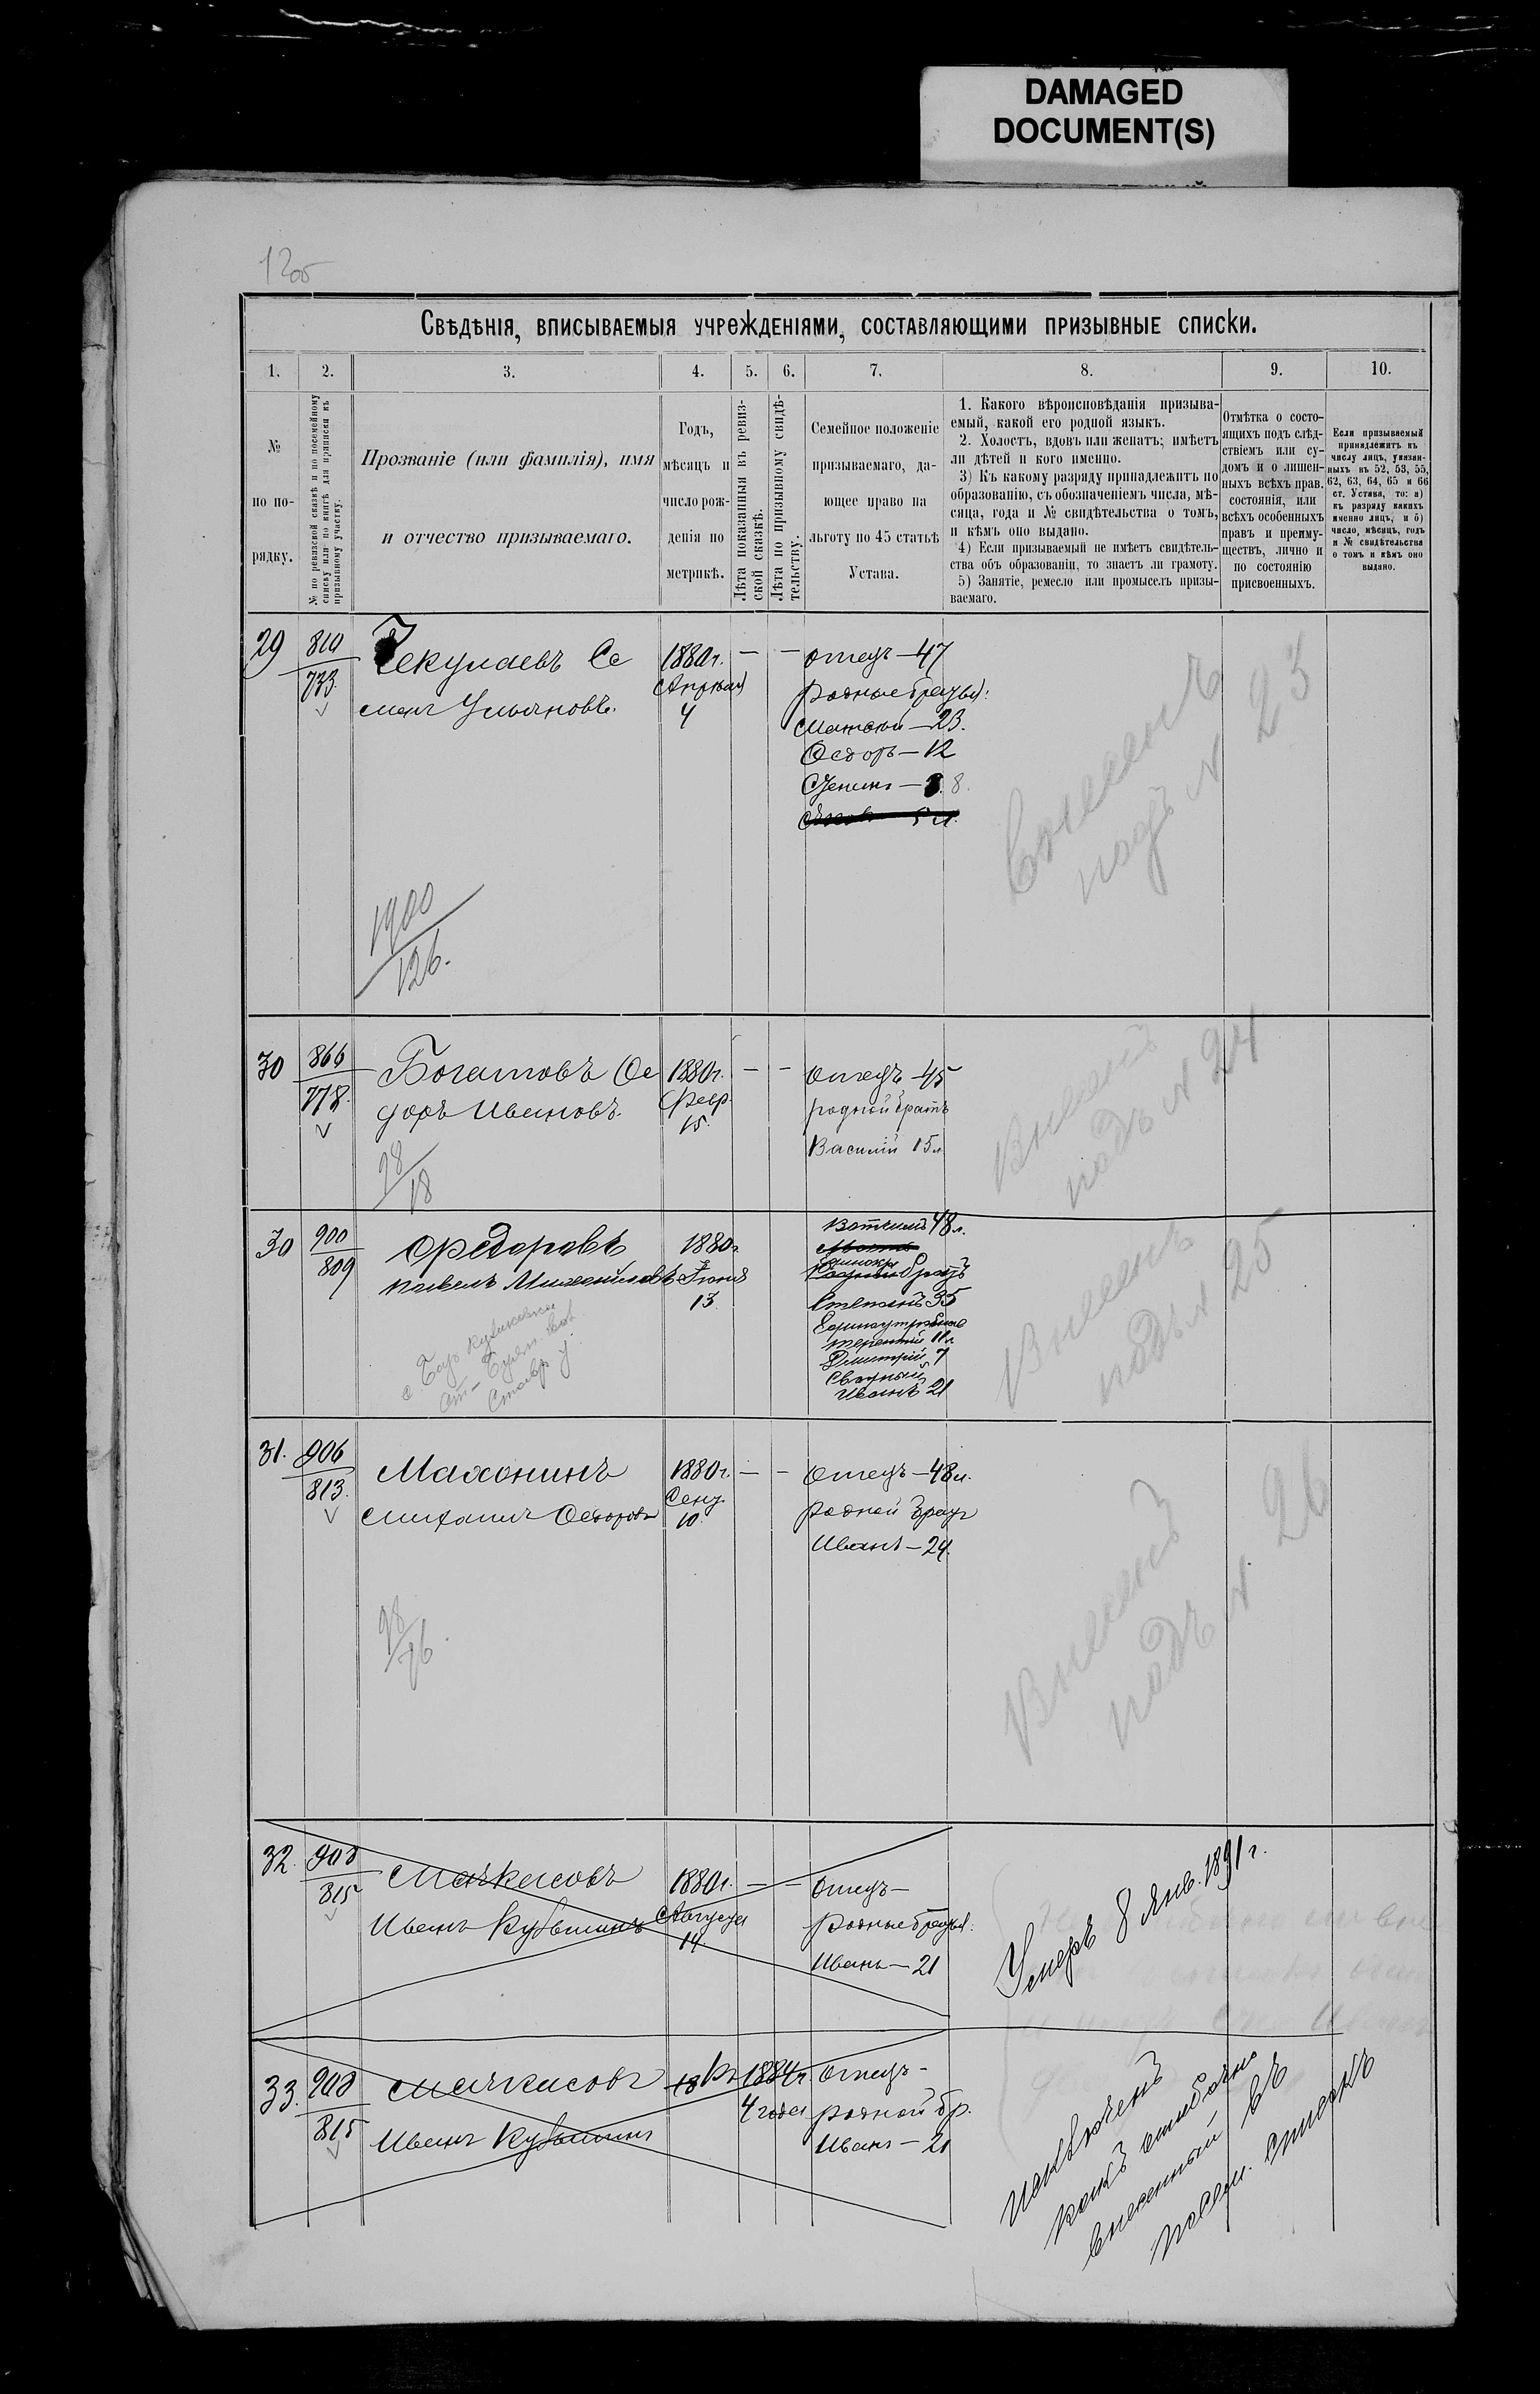 DAMAGED
DOCUMENT(S)
Свѣдѣнія, вписываемыя учрежденіями, составляющими призывные списки.
1. 2. 3. 4. 5. 6. 7. 8. 9. 10.
№
по по-
рядку.
№ по ревизской сказкѣ и по посемейному
списку или по книгѣ для приписки къ
призывному участку.
Прозваніе (или фамилія), имя
и отчество призываемаго.
Годъ,
мѣсяцъ и
число рож-
денія по
метрикѣ.
Лѣта показанныя въ ревиз-
ской сказкѣ.
Лѣта по призывному свидѣ-
тельству.
Семейное положеніе
призываемаго, да-
ющее право на
льготу по 45 статьѣ
Устава.
1. Какого вѣроисповѣданія призыва-
емый, какой его родной языкъ.
2. Холостъ, вдовъ или женатъ; имѣетъ
ли дѣтей и кого именно.
3) Къ какому разряду принадлежитъ по
образованію, съ обозначеніемъ числа, мѣ-
сяца, года и № свидѣтельства о томъ,
и кѣмъ оно выдано.
4) Если призываемый не имѣетъ свидѣтель-
ства объ образованіи, то знаетъ ли грамоту.
5) Занятіе, ремесло или промыселъ призы-
ваемаго.
Отмѣтка о состо-
ящихъ подъ слѣд-
ствіемъ или су-
домъ и о лишен-
ныхъ всѣхъ прав.
состоянія, или
всѣхъ особенныхъ
правъ и преиму-
ществъ, лично и
по состоянію
присвоенныхъ.
Если призываемый
принадлежитъ къ
числу лицъ, указан-
ныхъ въ 52, 53, 55,
62, 63, 64, 65 и 66
ст. Устава, то: а)
къ разряду какихъ
именно лицъ, и б)
число, мѣсяцъ, годъ
и № свидѣтельства
о томъ и кѣмъ оно
выдано.
29
810
733.
Чекулаевъ Се
менъ Ульяновъ.
1880г.
Апрѣля
4
— —
отецъ — 47
родные братья:
Матвей — 23.
Федоръ — 12
8.
Внесенъ
подъ № 23
1900
126.
30
866
778.
Богатовъ Фе
доръ Ивановъ.
1880г.
Февр.
15.
— —
отецъ — 45
родной братъ
Василій 15л
Внесенъ
подъ № 24
98
18
30
900
809
Федоровъ
Павелъ Михайловъ
1880г.
Іюня
13.
Вотчимъ 48л.
братъ
Степанъ 35
Единоутробные
Терентій 11л
Дмитрій 7
Сводный
Иванъ 21
Внесенъ
подъ № 25
31.
906
813.
Махонинъ
Михаилъ Федоровъ
1880г.
Сент.
10.
— —
отецъ — 48л.
родной братъ
Иванъ — 24.
Внесенъ
подъ № 26
32.
908
815
Мачкасовъ
Иванъ
1880г.
Августа
14.
— —
отецъ —
родные братья:
Иванъ — 21
Умеръ 8 Янв. 1891 г.
33.
908
815
Мачкасовъ
Иванъ
1884г.
4 года
отецъ —
родной бр.
Иванъ — 21
исключенъ
какъ ошибочно
внесенный въ
посем. списокъ